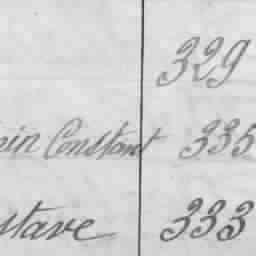 329
in Constant 335
stave 333